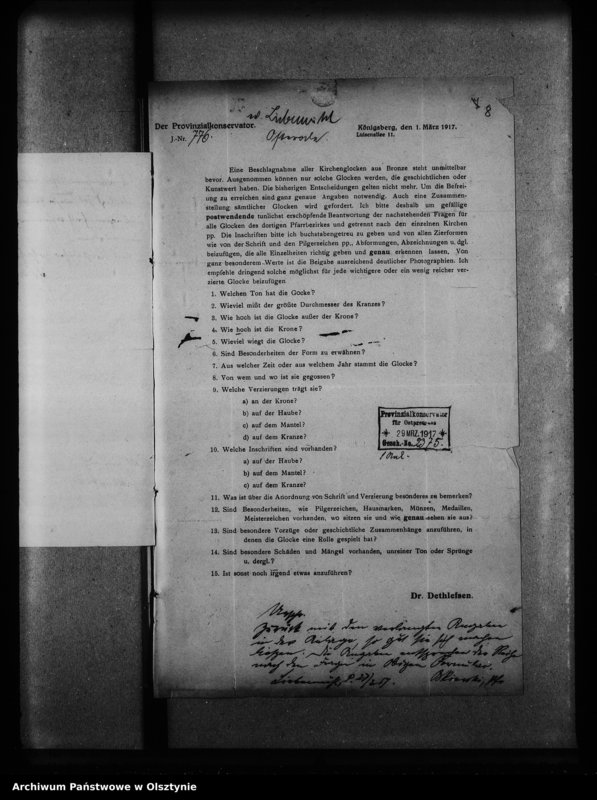 8
Der Provinzialkonservator.
J.-Nr. 776.
Osterode.
Königsberg, den 1. März 1917.
Luisenallee 11.
Eine Beschlagnahme aller Kirchenglocken aus Bronze steht unmittelbar
bevor. Ausgenommen können nur solche Glocken werden, die geschichtlichen oder
Kunstwert haben. Die bisherigen Entscheidungen gelten nicht mehr. Um die Befrei-
ung zu erreichen sind ganz genaue Angaben notwendig. Auch eine Zusammen-
stellung sämtlicher Glocken wird gefordert. Ich bitte deshalb um gefällige
postwendende tunlichst erschöpfende Beantwortung der nachstehenden Fragen für
alle Glocken des dortigen Pfarrbezirkes und getrennt nach den einzelnen Kirchen
pp. Die Inschriften bitte ich buchstabengetreu zu geben und von allen Zierformen
wie von der Schrift und den Pilgerzeichen pp., Abformungen, Abzeichnungen u. dgl.
beizufügen, die alle Einzelheiten richtig geben und genau erkennen lassen. Von
ganz besonderem Werte ist die Beigabe ausreichend deutlicher Photographien. Ich
empfehle dringend solche möglichst für jede wichtigere oder ein wenig reicher ver-
zierte Glocke beizufügen
1. Welchen Ton hat die Glocke?
2. Wieviel mißt der größte Durchmesser des Kranzes?
3. Wie hoch ist die Glocke außer der Krone?
4. Wie hoch ist die Krone?
5. Wieviel wiegt die Glocke?
6. Sind Besonderheiten der Form zu erwähnen?
7. Aus welcher Zeit oder aus welchem Jahr stammt die Glocke?
8. Von wem und wo ist sie gegossen?
9. Welche Verzierungen trägt sie?
a) an der Krone?
b) auf der Haube?
c) auf dem Mantel?
d) auf dem Kranze?
Provinzialkonservator
für Ostpreussen
29 MRZ. 1917
Gesch.-No. 2075.
10. Welche Inschriften sind vorhanden?
a) auf der Haube?
b) auf dem Mantel?
c) auf dem Kranze?
11. Was ist über die Anordnung von Schrift und Verzierung besonderes zu bemerken?
12. Sind Besonderheiten, wie Pilgerzeichen, Hausmarken, Münzen, Medaillen,
Meisterzeichen vorhanden, wo sitzen sie und wie genau sehen sie aus?
13. Sind besondere Vorzüge oder geschichtliche Zusammenhänge anzuführen, in
denen die Glocke eine Rolle gespielt hat?
14. Sind besondere Schäden und Mängel vorhanden, unreiner Ton oder Sprünge
u. dergl.?
15. Ist sonst noch irgend etwas anzuführen?
Dr. Dethlefsen.
Zurück mit den verlangten Angaben
in der Anlage, so gut sie sich machen
ließen. Die Angaben entsprechen der Reihe
nach den
Archiwum Państwowe w Olsztynie